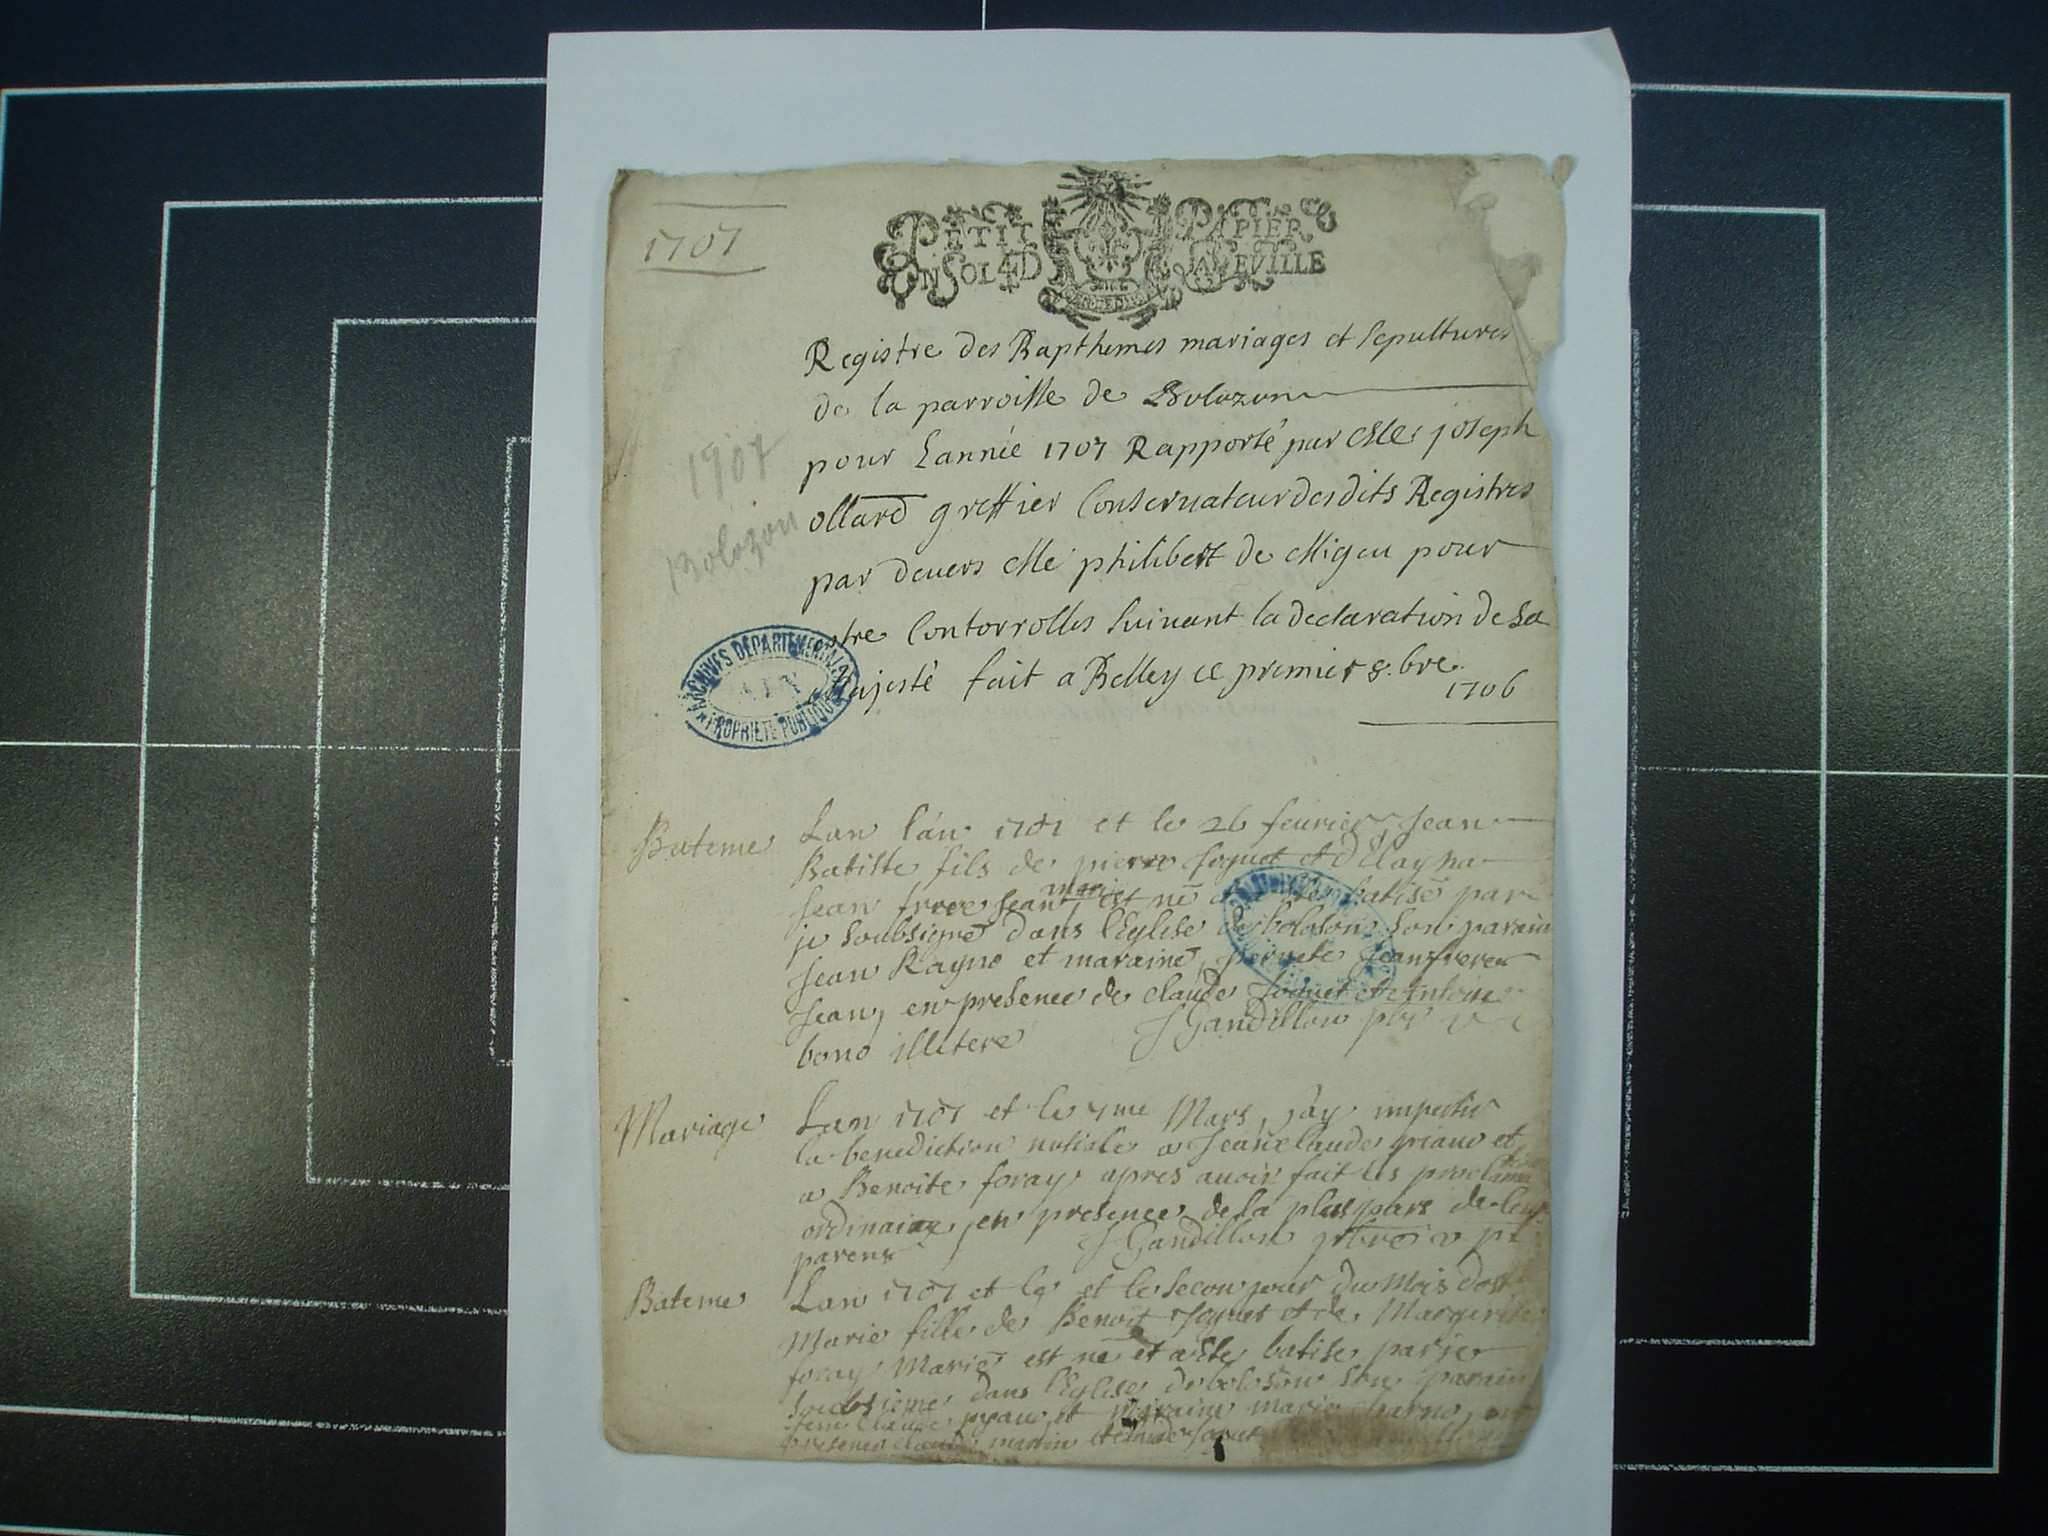 1707
PETIT PAPIER
UN SOL 4D LA FEVILLE
Registre des Bapthemes mariages et sepultures
de la parroisse de Bolozon
pour Lannée 1707 Rapporté par Me joseph
ollard greffier Conservateur desdits Registres
1907
Bolozon
par devers Me philibert de Migeu pour
estre Contorrolles suivant la declaration de Sa
Majesté fait a Belley ce premier 8.bre
1706
ARCHIVES DÉPARTEMENTALES
AIN
PROPRIÉTÉ PUBLIQUE
Bateme
Lan l'an 1707 et le 26 feurier Jean
Batiste fils de pierre Joquet et d
Jean frere Jean mari est né et batisé par
je soubsigné dans l'Eglise de boloson son parain
Jean Rayne et maraine pernete Jean frere
Jean, en presence de claude Joquet et Antoine
bono illitere J Gandillon pbr
Mariage
Lan 1707 et le 7me Mars, j'ay impertir
la benediction nutiale a Jean claude piane et
a Benoite foray apres avoir fait les proclama
ordinaire, en presence de la plus pars de leur
parens J Gandillon
Bateme
Lan 1707 et le et le secon jour du Mois d'ost
Marie fille de Benoit Joquet et de Margerite
foray Marie est né et a esté batise par je
soubsigné dans l'Eglise de boloson son parain
Jean Claude pyane et maraine marie
presence claude et claude